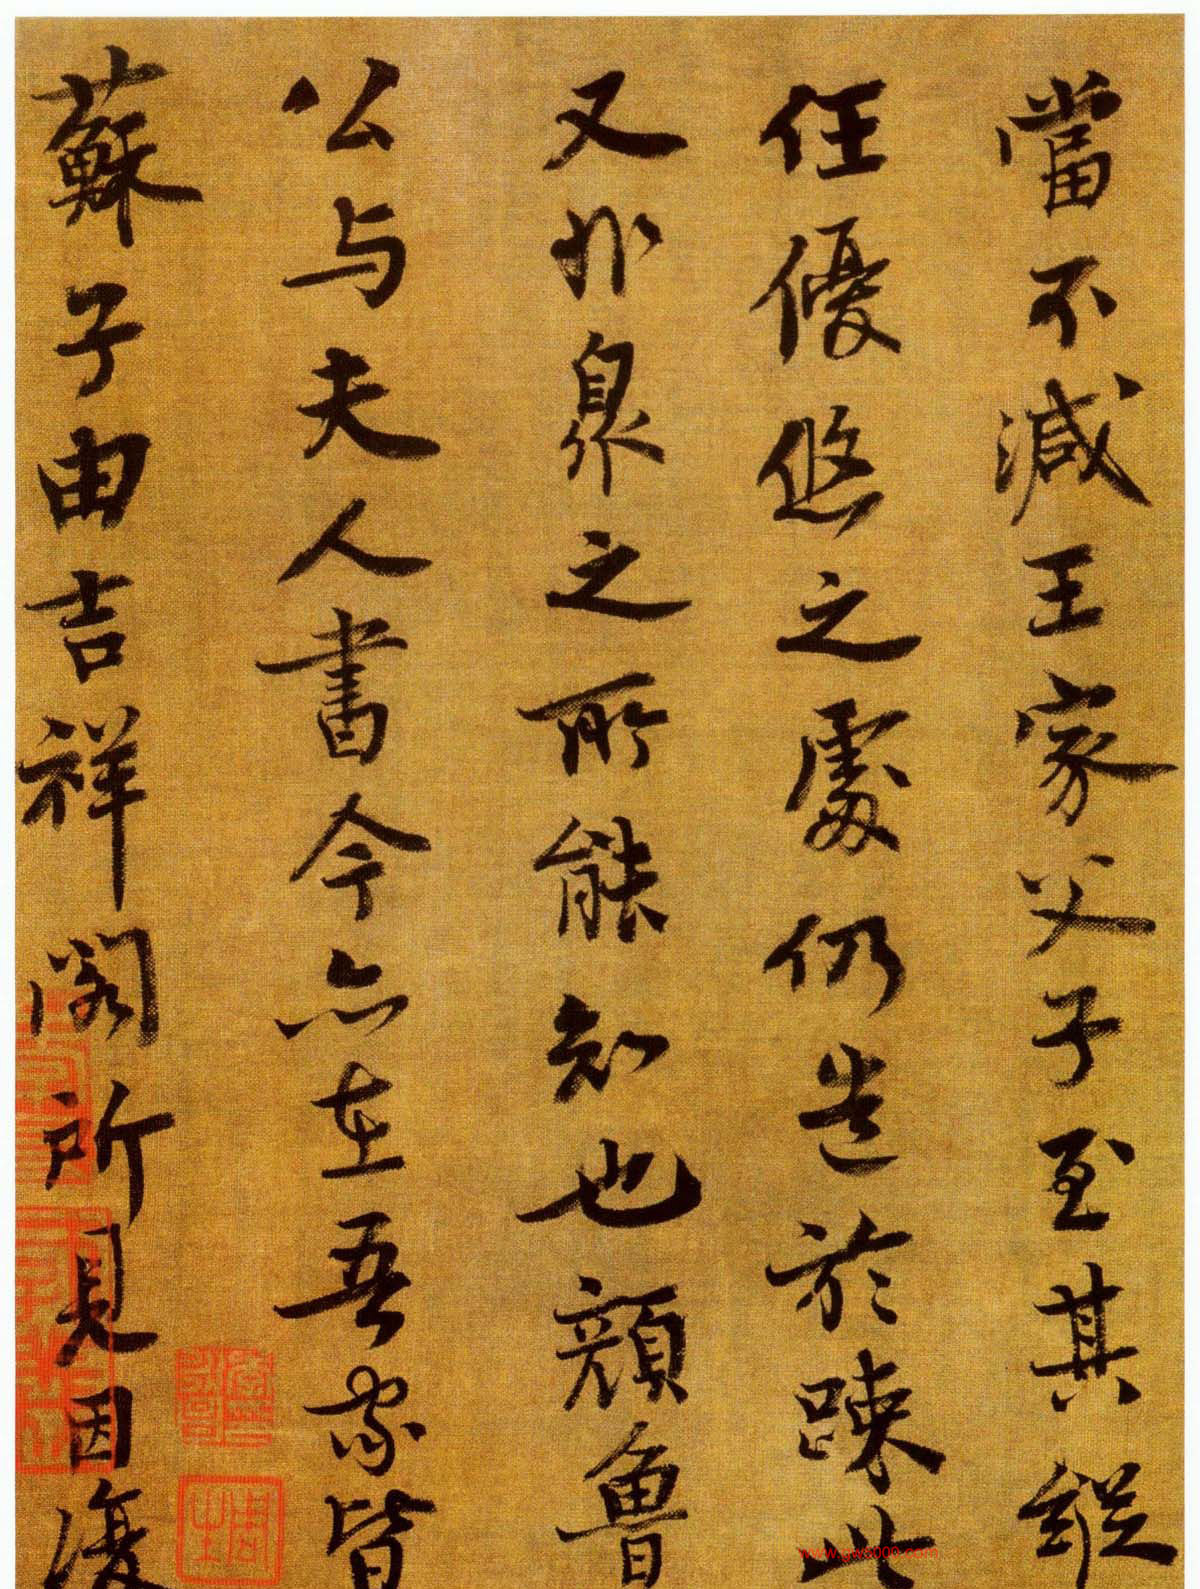 當不減王家父子至其縱
任優悠之處仍造於踈此
又非眾之所能知也顏魯
公与夫人書今亦在吾家皆
蘇子由吉祥閣所見因復
www.gwt000.com